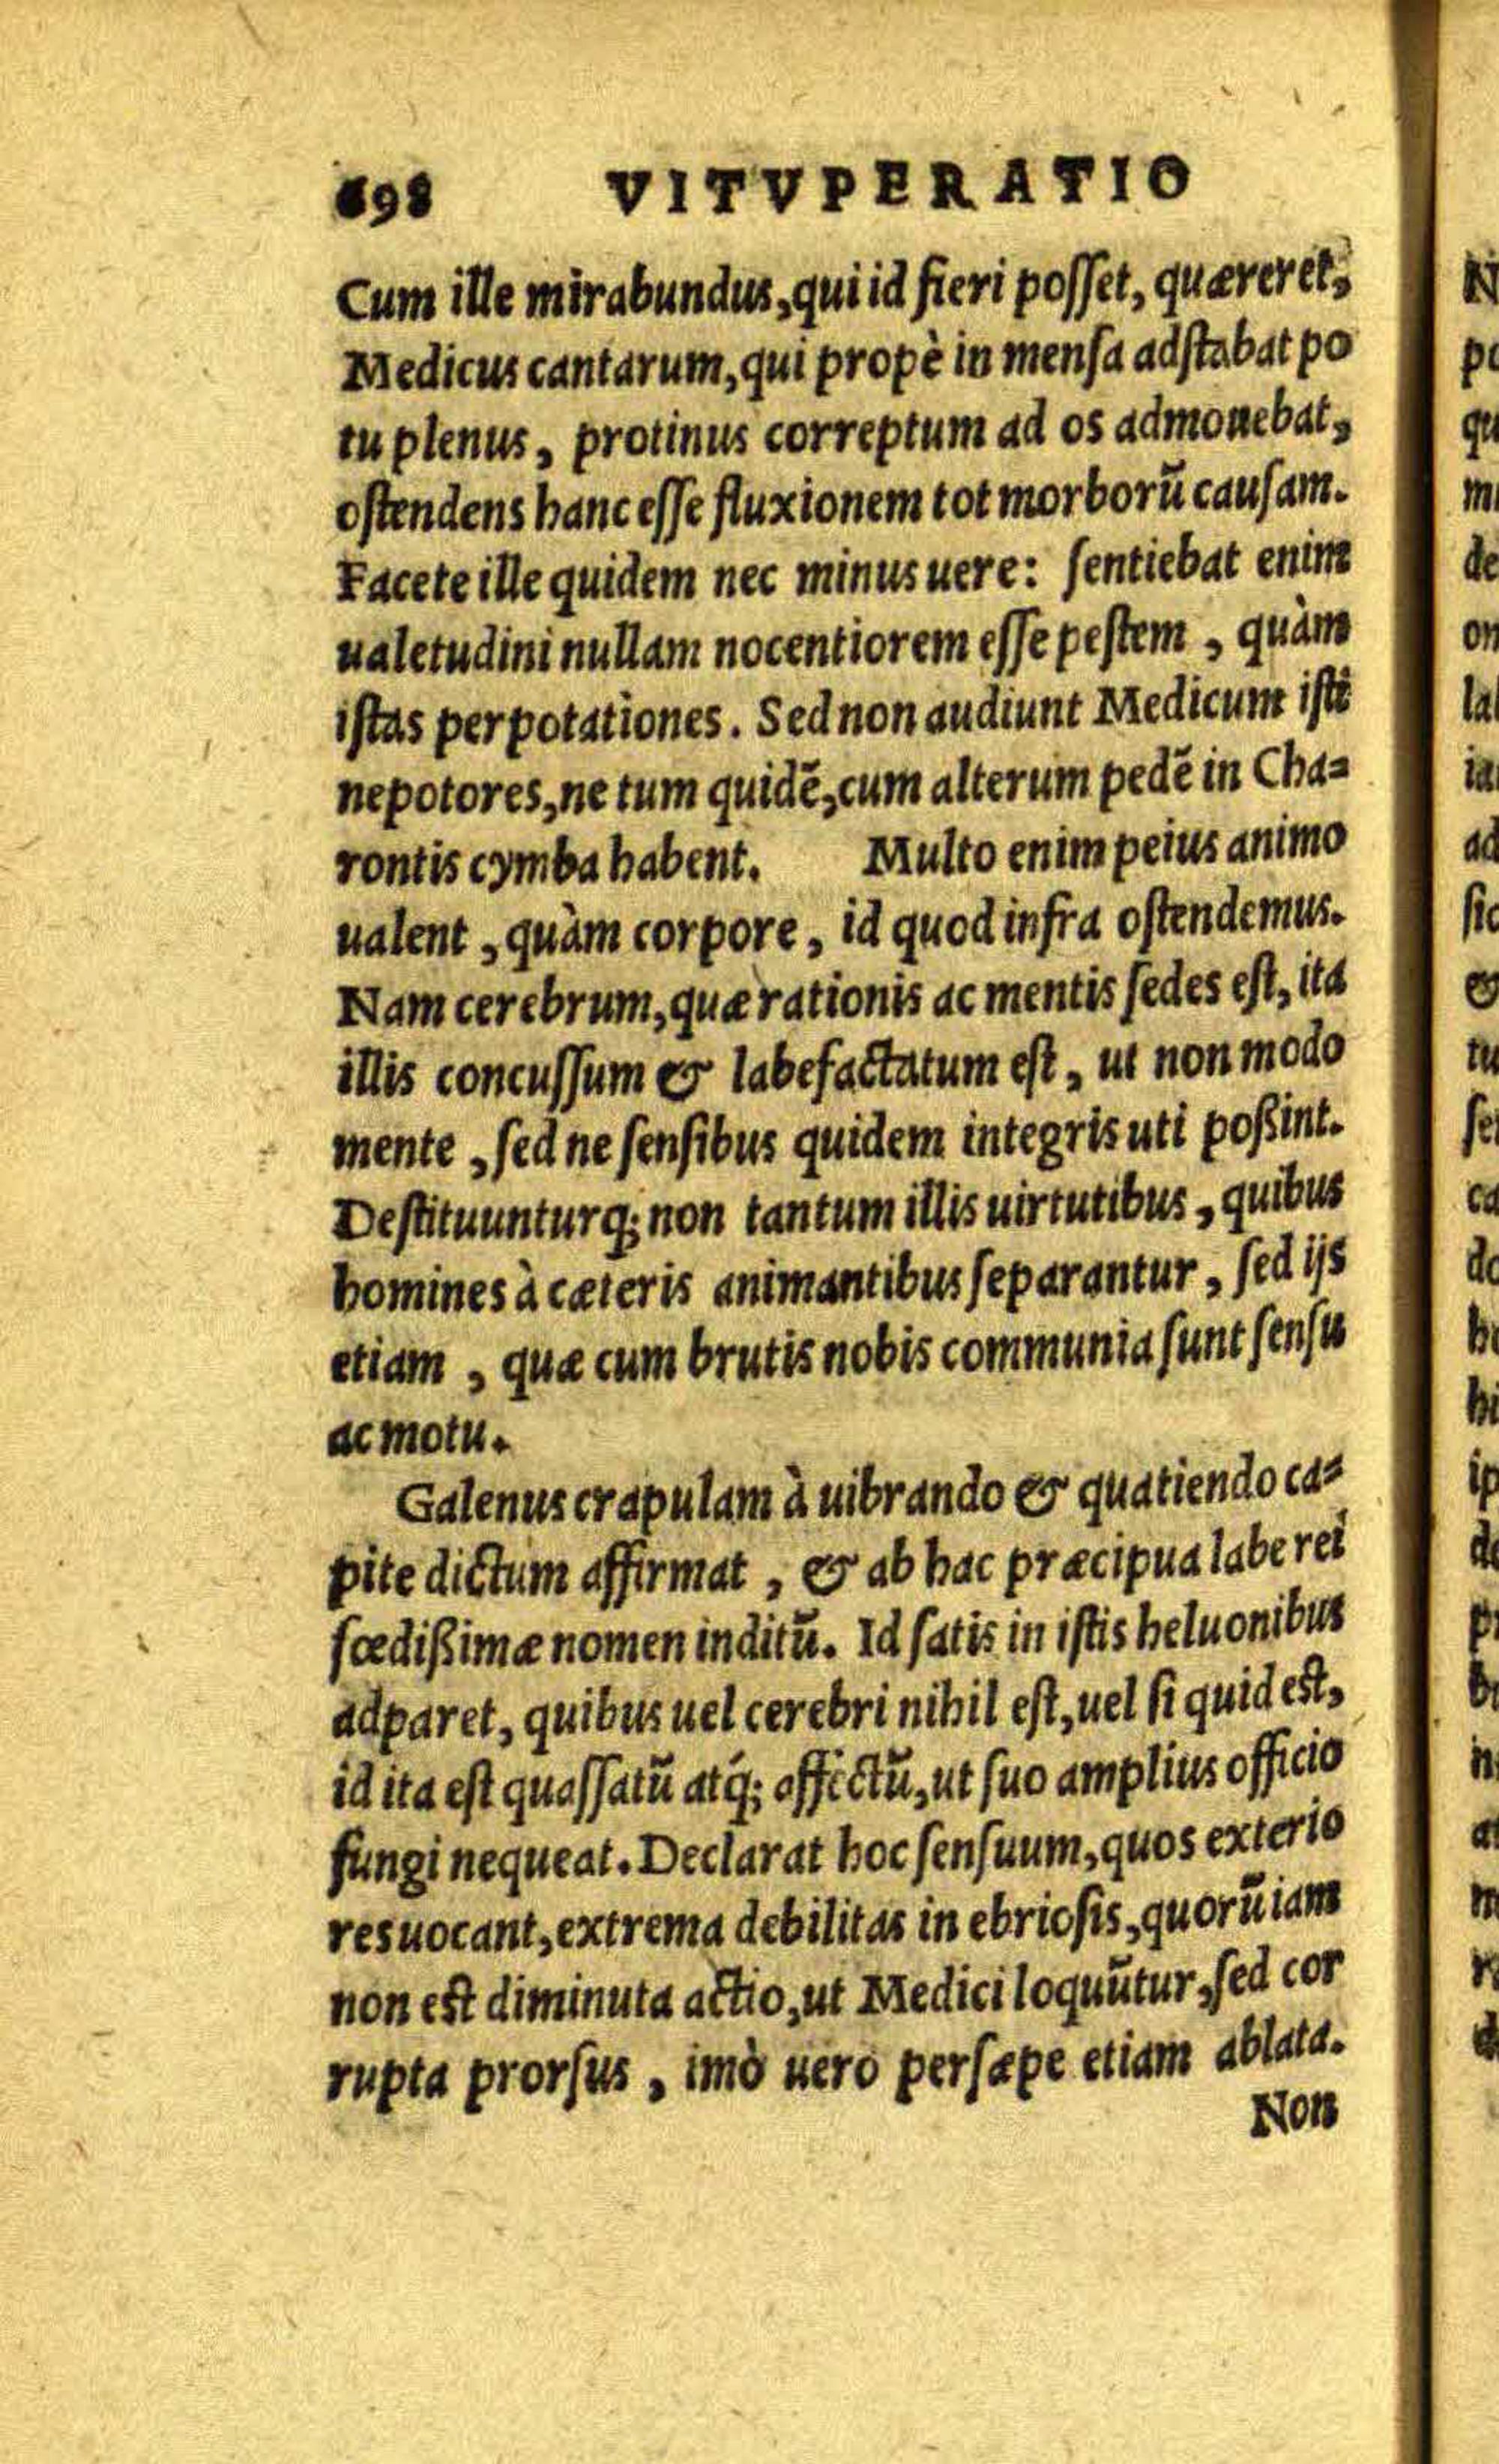 698 VITVPERATIO
Cum ille mirabundus, qui id fieri poſſet, quæreret,
Medicus cantarum, qui propè in menſa adſtabat po
tu plenus, protinus correptum ad os admouebat,
oſtendens hanc eſſe fluxionem tot morborũ cauſam.
Facete ille quidem nec minus uere: ſentiebat enim
ualetudini nullam nocentiorem eſſe peſtem, quàm
iſtas perpotationes. Sed non audiunt Medicum iſti
nepotores, ne tum quidẽ, cum alterum pedẽ in Cha=
rontis cymba habent. Multo enim peius animo
ualent, quàm corpore, id quod infra oſtendemus.
Nam cerebrum, quæ rationis ac mentis ſedes eſt, ita
illis concuſſum & labefactatum eſt, ut non modo
mente, ſed ne ſenſibus quidem integris uti poßint.
Deſtituunturq; non tantum illis uirtutibus, quibus
homines à cæteris animantibus ſeparantur, ſed ijs
etiam, quæ cum brutis nobis communia ſunt ſenſu
ac motu.
Galenus crapulam à uibrando & quatiendo ca=
pite dictum affirmat, & ab hac præcipua labe rei
fœdißimæ nomen inditũ. Id ſatis in iſtis heluonibus
adparet, quibus uel cerebri nihil eſt, uel ſi quid eſt,
id ita eſt quaſſatũ atq́; affectũ, ut ſuo amplius officio
fungi nequeat. Declarat hoc ſenſuum, quos exterio
res uocant, extrema debilitas in ebrioſis, quorũ iam
non eſt diminuta actio, ut Medici loquũtur, ſed cor
rupta prorſus, imò uero perſæpe etiam ablata.
Non